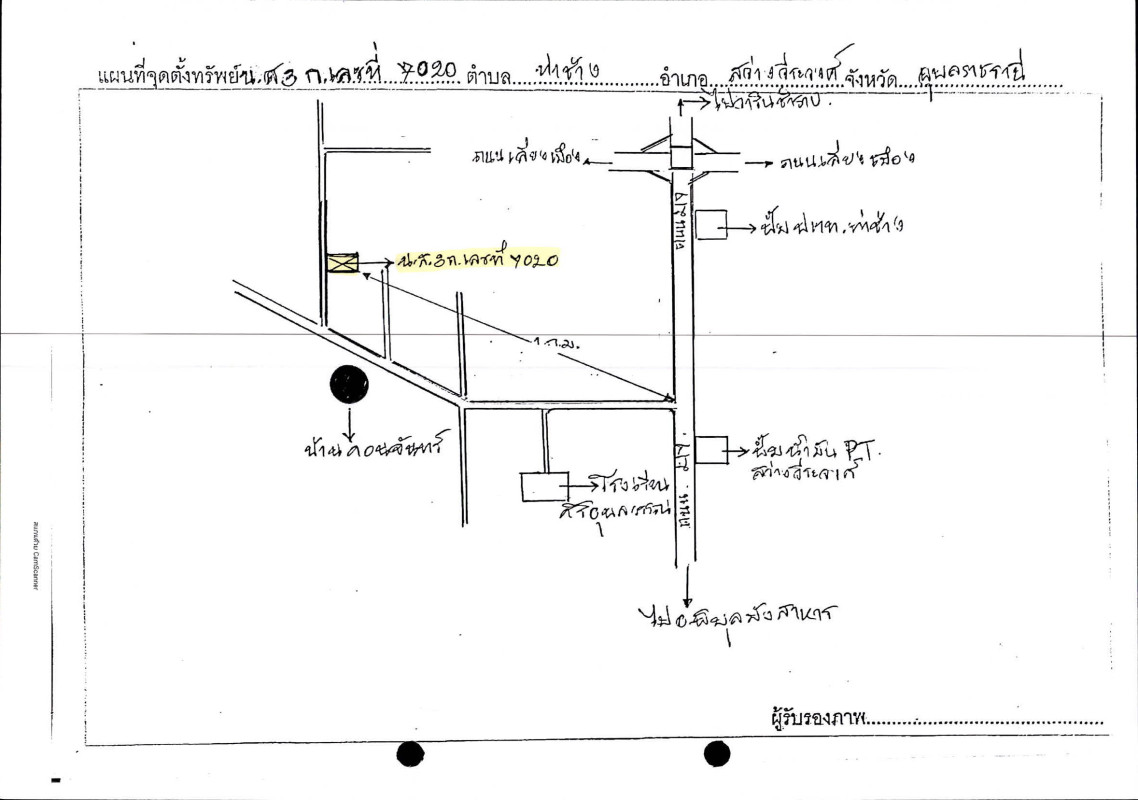 แผนที่จุดตั้งทรัพย์ น.ส.3 ก.เลขที่ 7020 ตำบล ท่าช้าง อำเภอ สว่างวีระวงศ์ จังหวัด อุบลราชธานี
ไปวารินชำราบ.
ถนนเลี่ยงเมือง
ถนนเลี่ยงเมือง
ปั๊ม ปตท.ท่าช้าง
น.ส.3ก.เลขที่ 7020
1 ก.ม.
บ้านดอนจันทร์
ปั๊มน้ำมัน PT.
สว่างวีระวงศ์
โรงเรียน
ไป อ.พิบูลมังสาหาร
ผู้รับรองภาพ
สแกนด้วย CamScanner